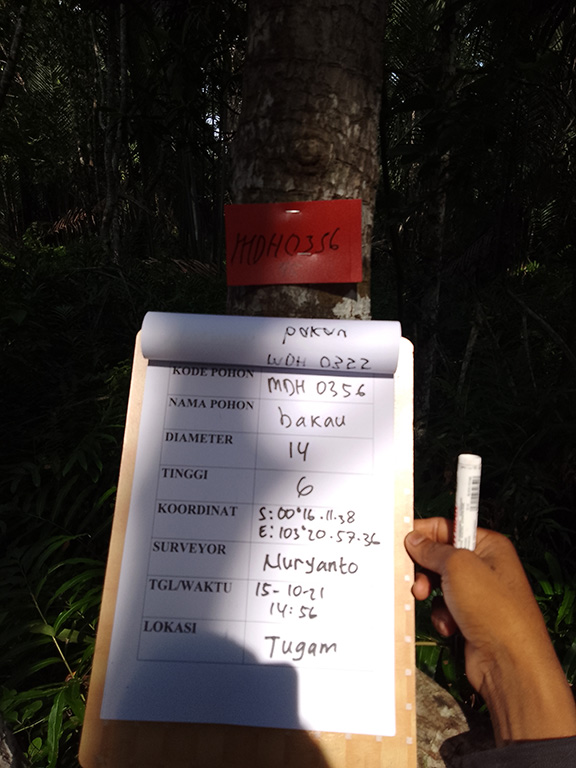 MDH0356
pakun
WDH 0322
KODE POHON MDH 0356
NAMA POHON bakau
DIAMETER 14
TINGGI 6
KOORDINAT S: 00°16.11.38
E: 103°20.57.36
SURVEYOR Nuryanto
TGL/WAKTU 15-10-21
14:56
LOKASI Tugam